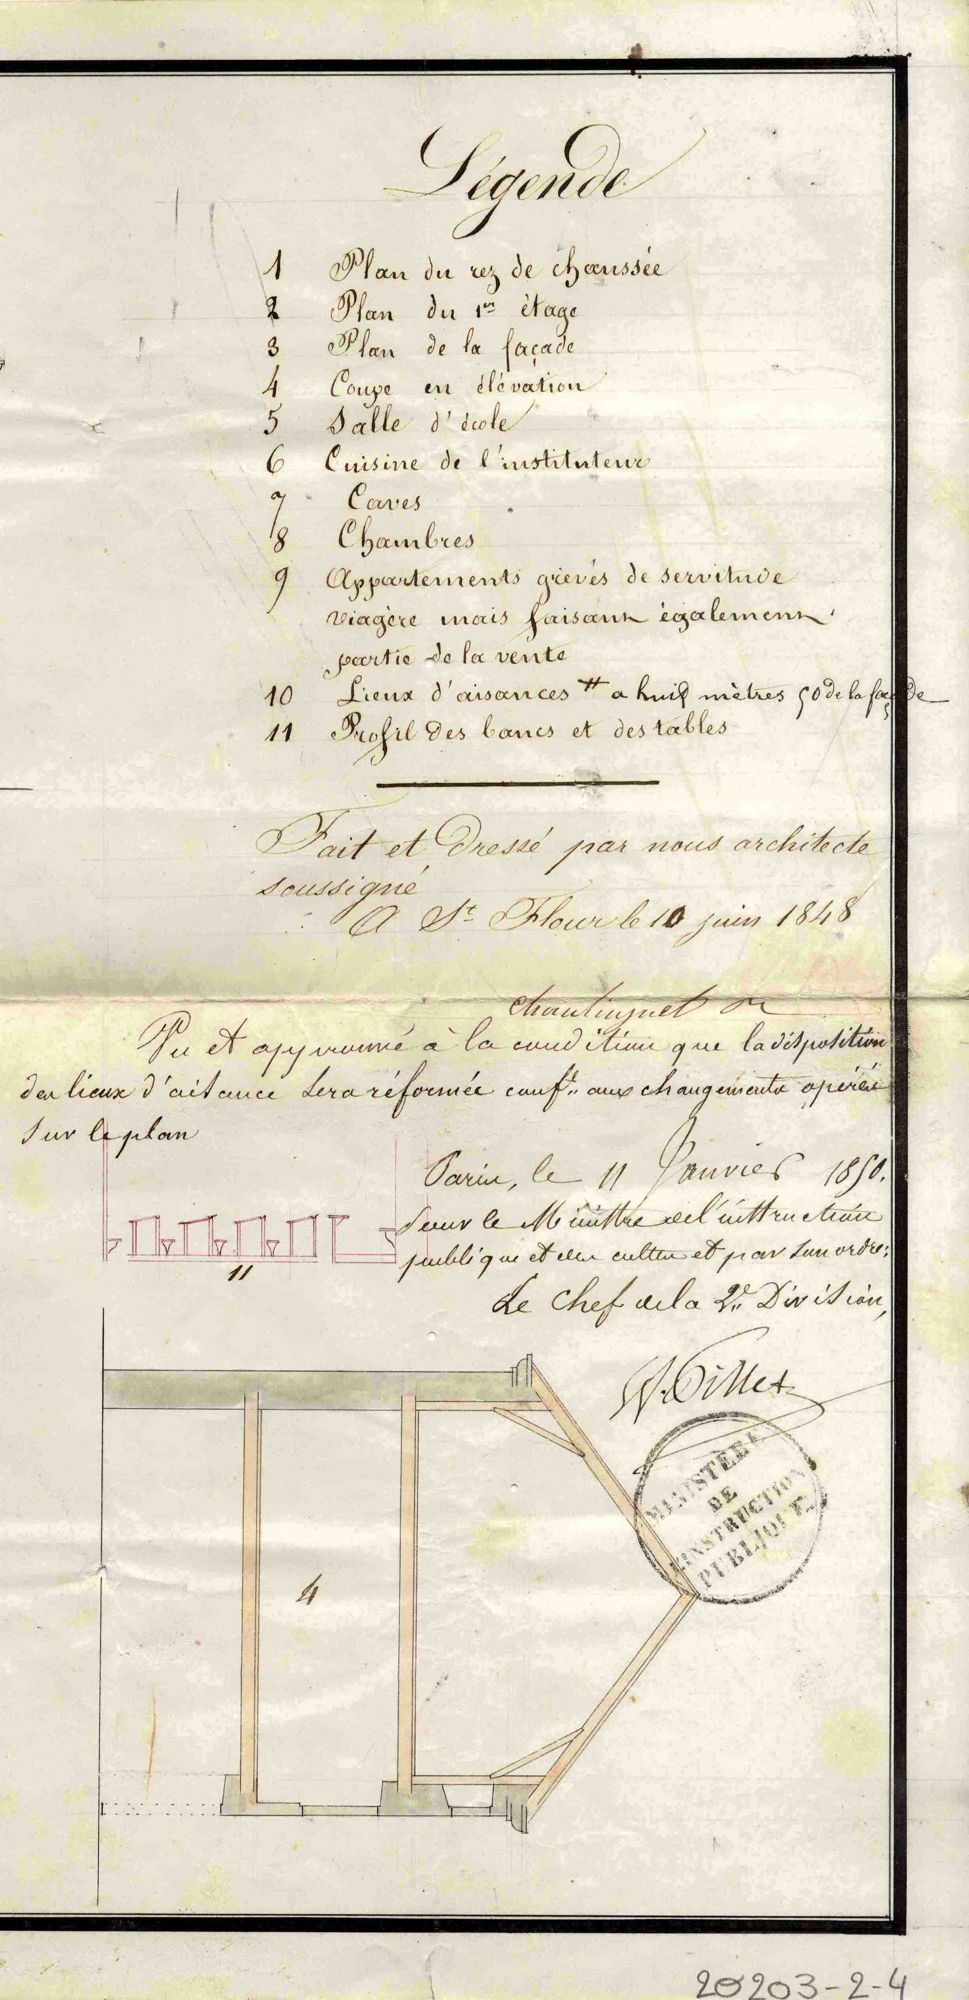 Légende
1 Plan du rez de chaussée
2 Plan du 1er étage
3 Plan de la façade
4 Coupe en élévation
5 Salle d'école
6 Cuisine de l'instituteur
7 Caves
8 Chambres
9 Appartements grevés de servitude
viagère mais faisant également
partie de la vente
10 Lieux d'aisances # a huit mètres 50 de la façade
11 Profil des bancs et des tables
Fait et Dressé par nous architecte
soussigné
A St Flour le 10 juin 1848
Vu et approuvé à la condition que la disposition
des lieux d'aisance sera réformée conft. aux changements opérés
sur le plan
Paris, le 11 Janvier 1850.
Pour le Ministre de l'instruction
publique et des cultes et par son ordre:
Le Chef de la 2e Division,
11
MINISTÈRE
DE
L'INSTRUCTION
PUBLIQUE
4
20203-2-4